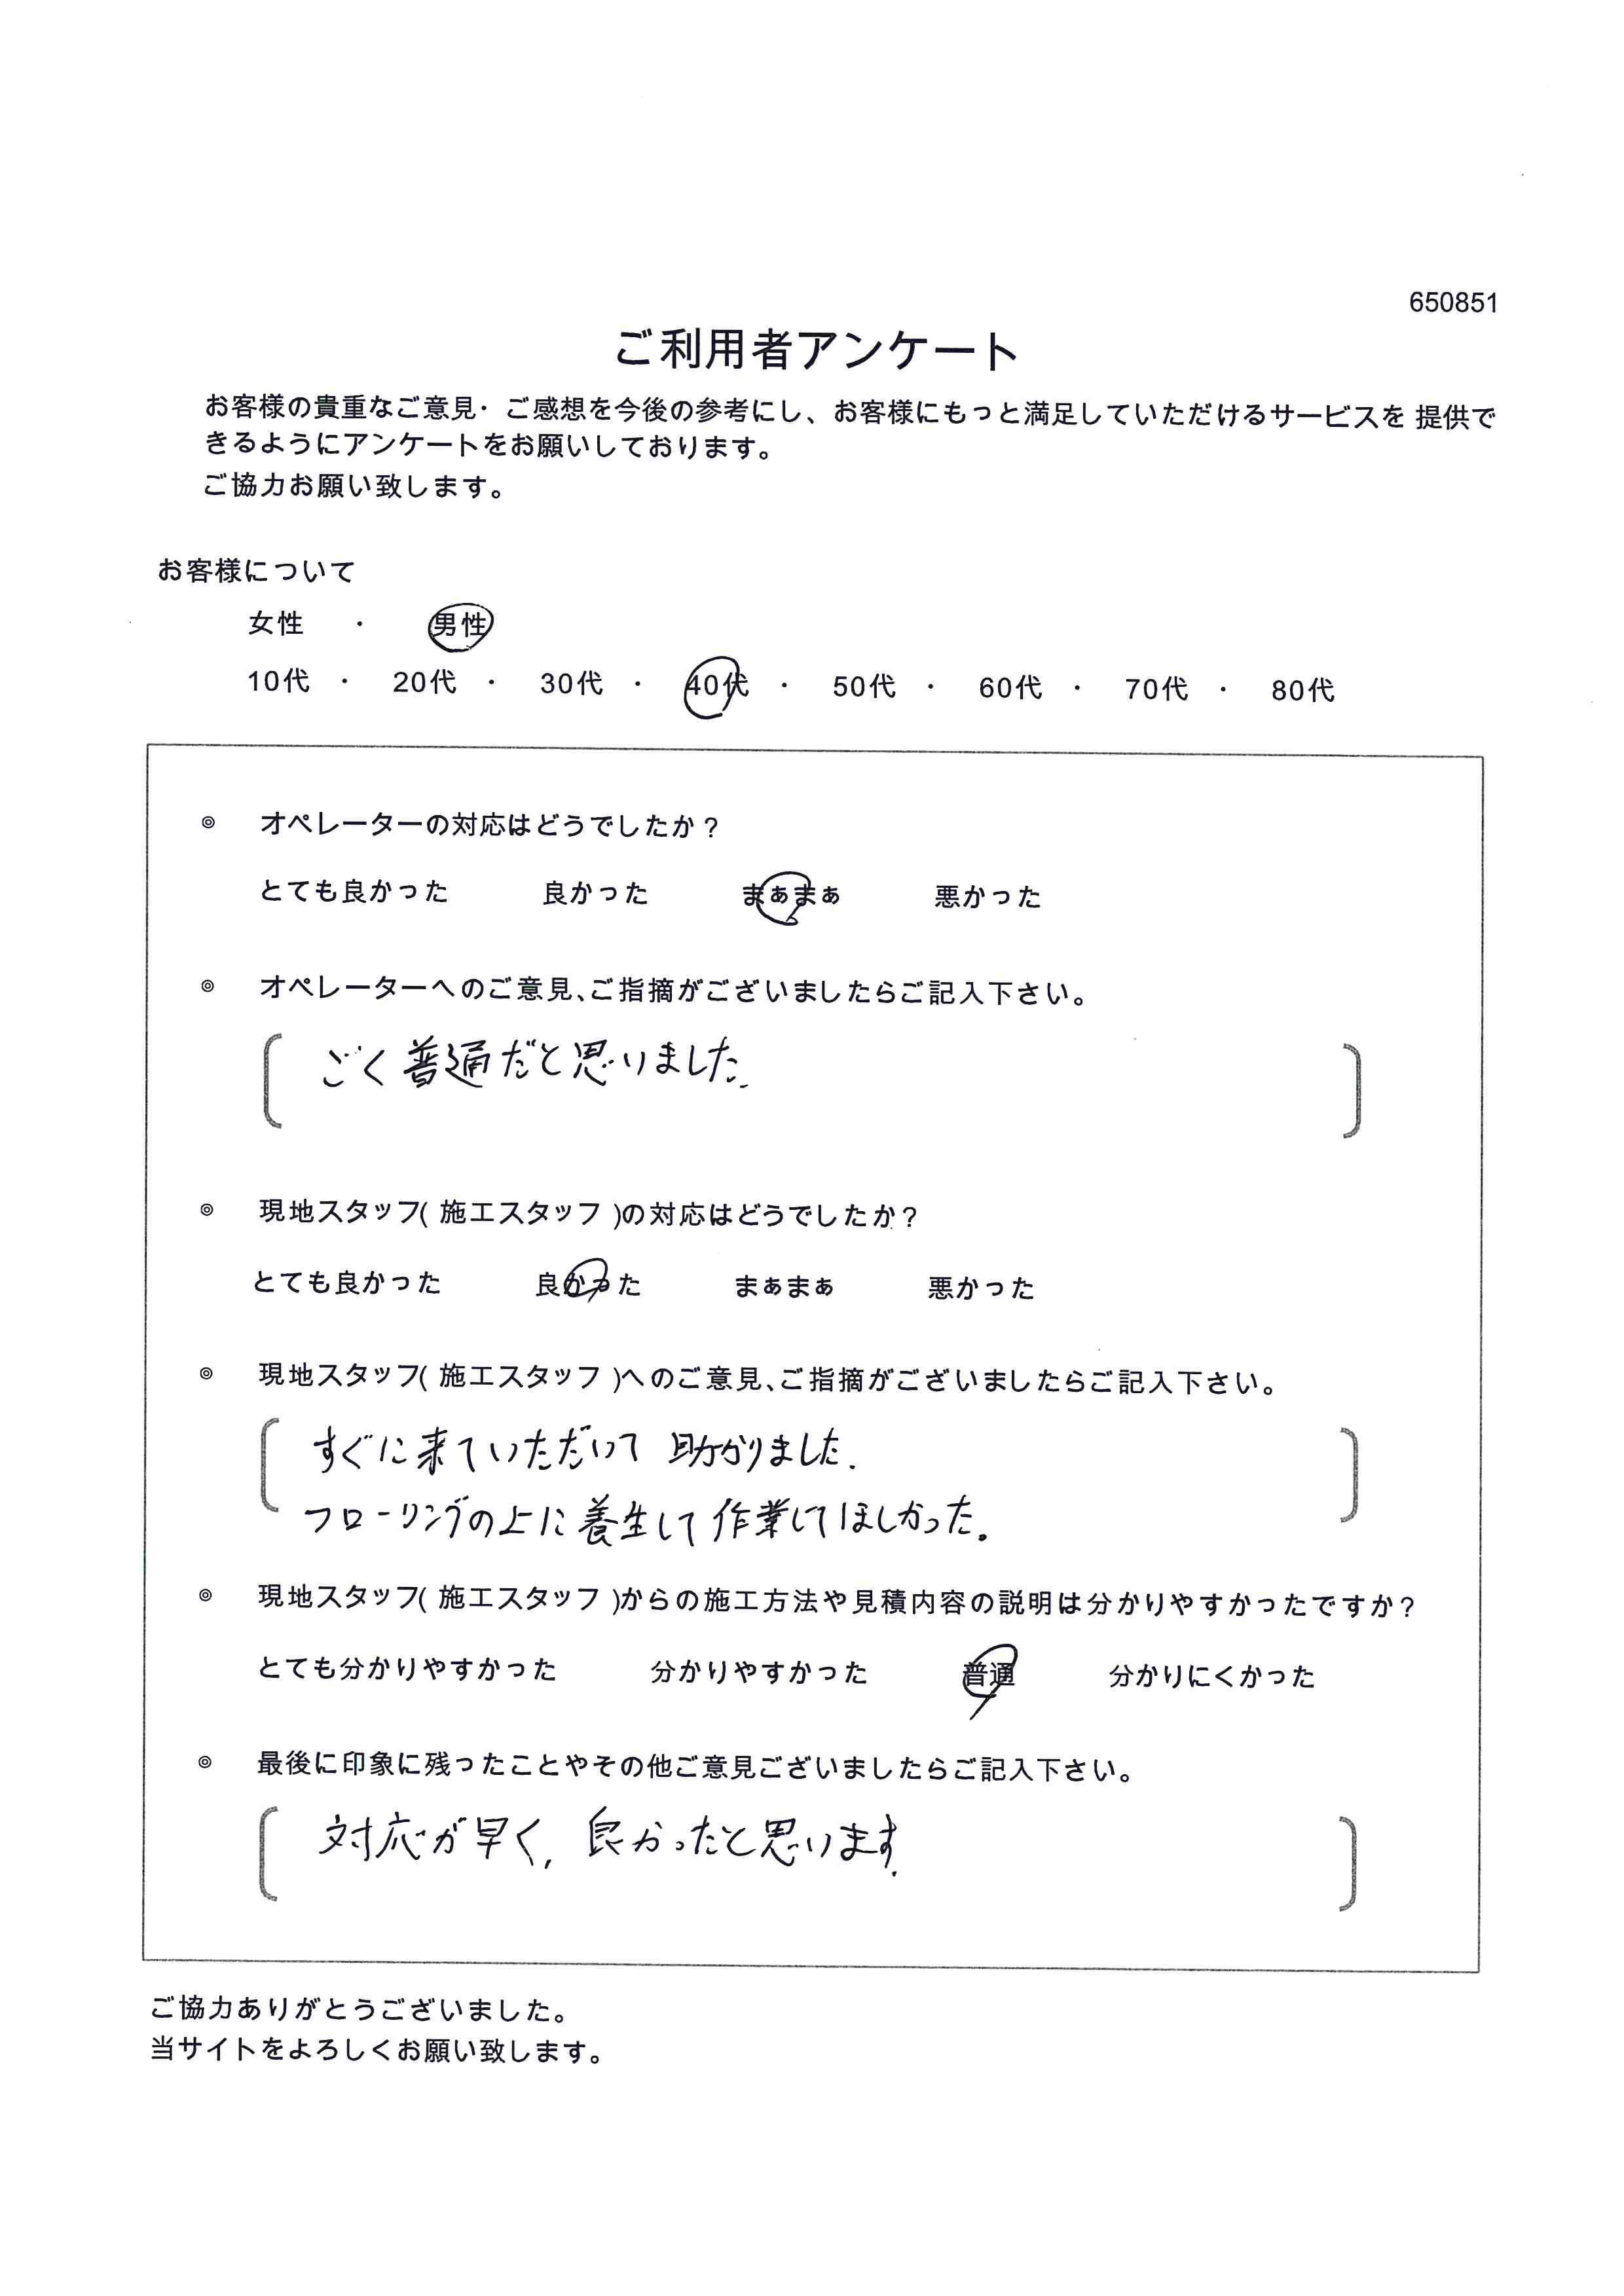 650851
ご利用者アンケート
お客様の貴重なご意見・ご感想を今後の参考にし、お客様にもっと満足していただけるサービスを 提供で
きるようにアンケートをお願いしております。
ご協力お願い致します。
お客様について
女性 ・ 男性
10代 ・ 20代 ・ 30代 ・ 40代 ・ 50代 ・ 60代 ・ 70代 ・ 80代
◎ オペレーターの対応はどうでしたか?
とても良かった 良かった まぁまぁ 悪かった
◎ オペレーターへのご意見、ご指摘がございましたらご記入下さい。
ごく普通だと思いました.
◎ 現地スタッフ( 施工スタッフ )の対応はどうでしたか?
とても良かった 良かった まぁまぁ 悪かった
◎ 現地スタッフ( 施工スタッフ )へのご意見、ご指摘がございましたらご記入下さい。
すぐに来ていただいて 助かりました.
フローリングの上に養生して作業してほしかった.
◎ 現地スタッフ( 施工スタッフ )からの施工方法や見積内容の説明は分かりやすかったですか?
とても分かりやすかった 分かりやすかった 普通 分かりにくかった
◎ 最後に印象に残ったことやその他ご意見ございましたらご記入下さい。
対応が早く, 良かったと思います.
ご協力ありがとうございました。
当サイトをよろしくお願い致します。